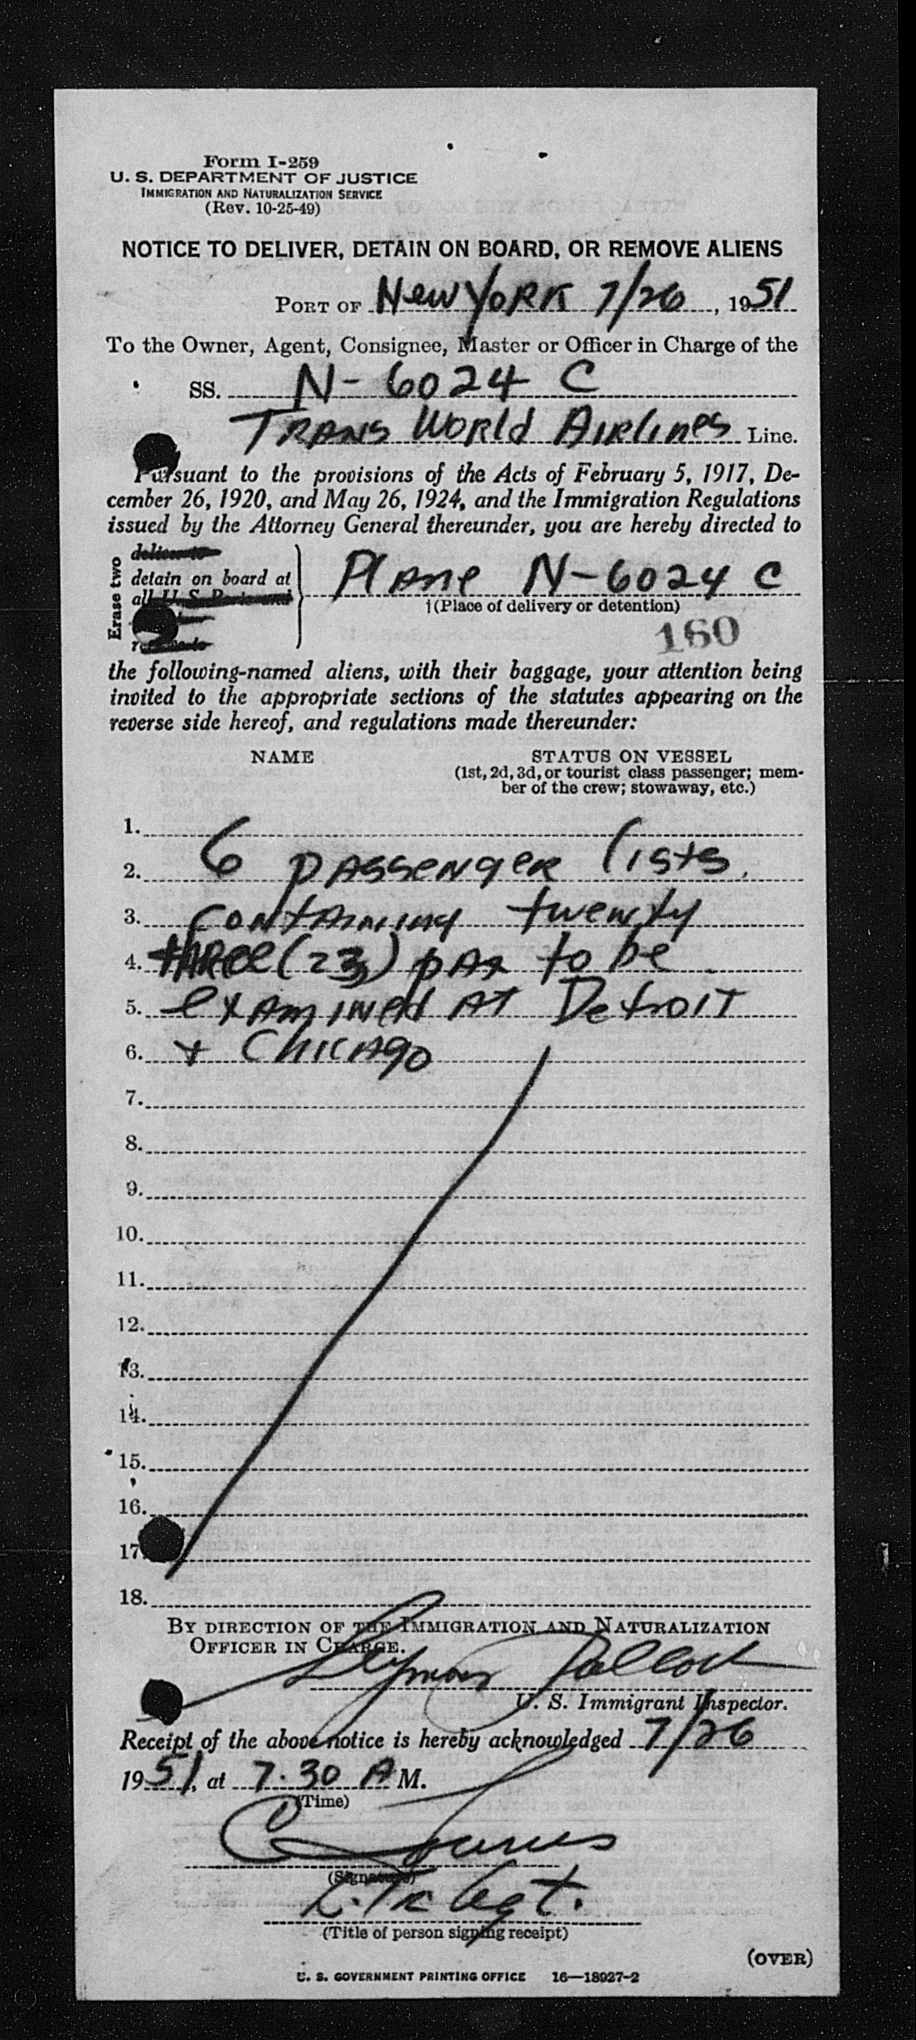 Form I-259
U. S. DEPARTMENT OF JUSTICE
IMMIGRATION AND NATURALIZATION SERVICE
(Rev. 10-25-49)
NOTICE TO DELIVER, DETAIN ON BOARD, OR REMOVE ALIENS
PORT OF New York 7/26, 1951
To the Owner, Agent, Consignee, Master or Officer in Charge of the
SS. N-6024 C
Trans World Airlines Line.
Pursuant to the provisions of the Acts of February 5, 1917, De-
cember 26, 1920, and May 26, 1924, and the Immigration Regulations
issued by the Attorney General thereunder, you are hereby directed to
Erase two
deliver to
detain on board at
all U. S. Ports and
Plane N-6024 C
†(Place of delivery or detention)
160
the following-named aliens, with their baggage, your attention being
invited to the appropriate sections of the statutes appearing on the
reverse side hereof, and regulations made thereunder:
NAME STATUS ON VESSEL
(1st, 2d, 3d, or tourist class passenger; mem-
ber of the crew; stowaway, etc.)
1.
2. 6 passenger lists
3. containing twenty
4. three (23) pax to be
5. examined at Detroit
6. + Chicago
7.
8.
9.
10.
11.
12.
13.
14.
15.
16.
17.
18.
BY DIRECTION OF THE IMMIGRATION AND NATURALIZATION
OFFICER IN CHARGE.
U. S. Immigrant Inspector.
Receipt of the above notice is hereby acknowledged 7/26
1951, at 7.30 A M.
(Time)
(Signature)
Agt.
(Title of person signing receipt)
(OVER)
U. S. GOVERNMENT PRINTING OFFICE 16—18927-2